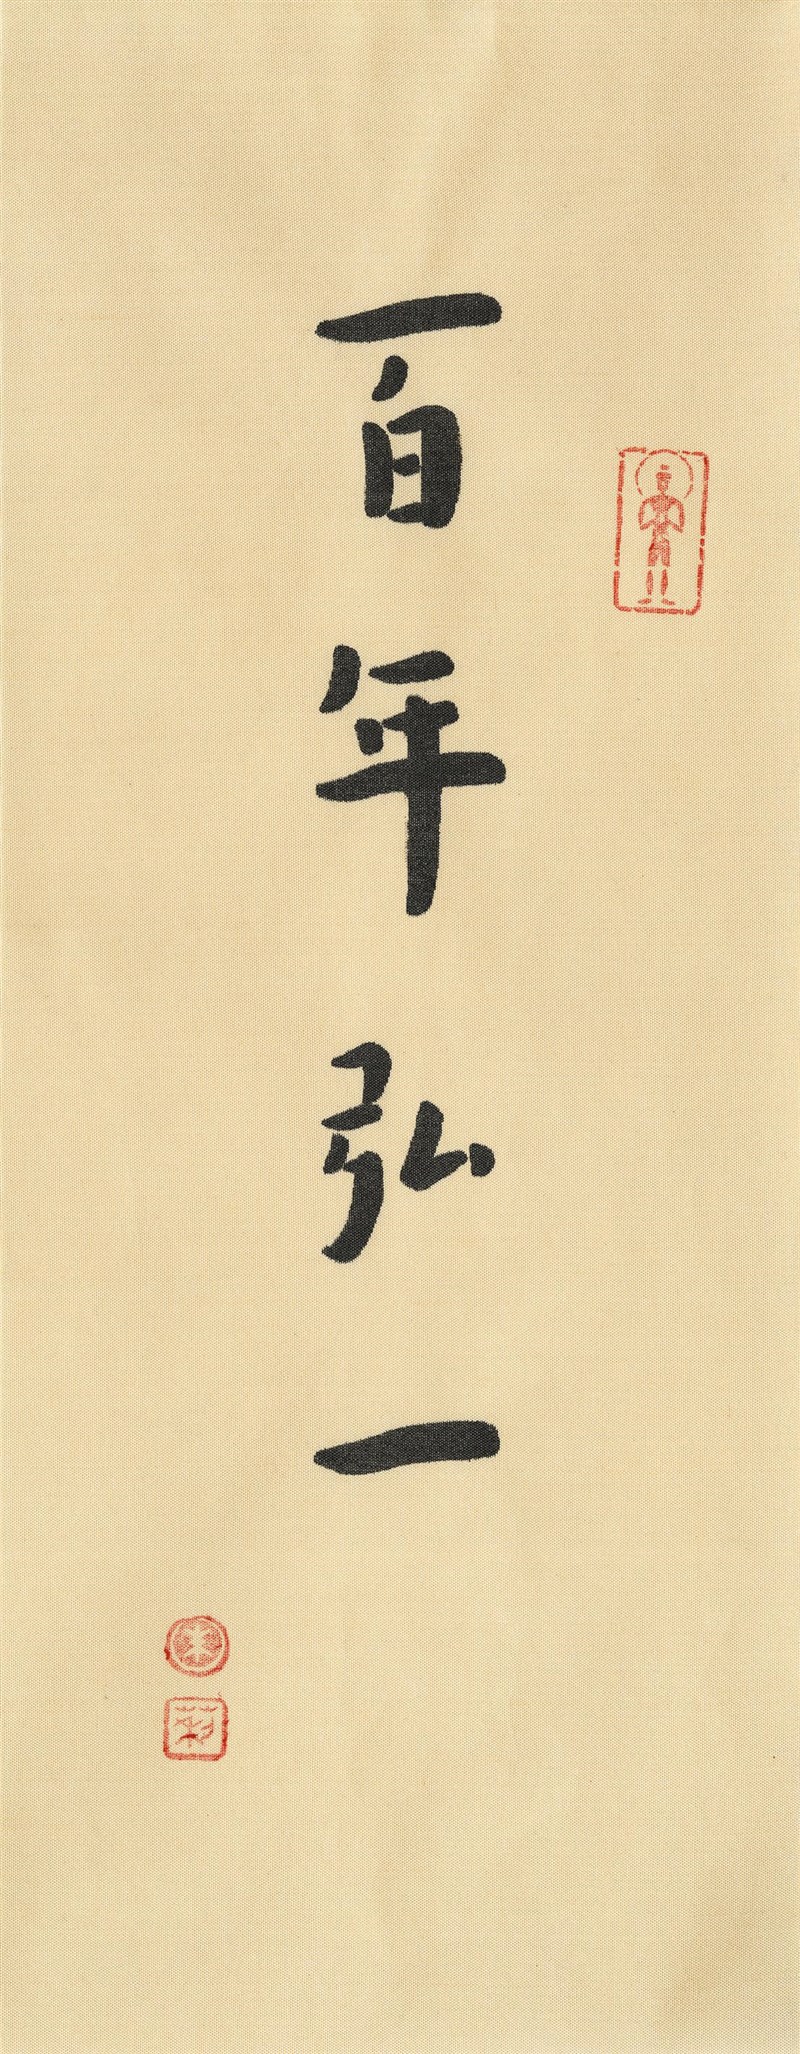 百年弘一